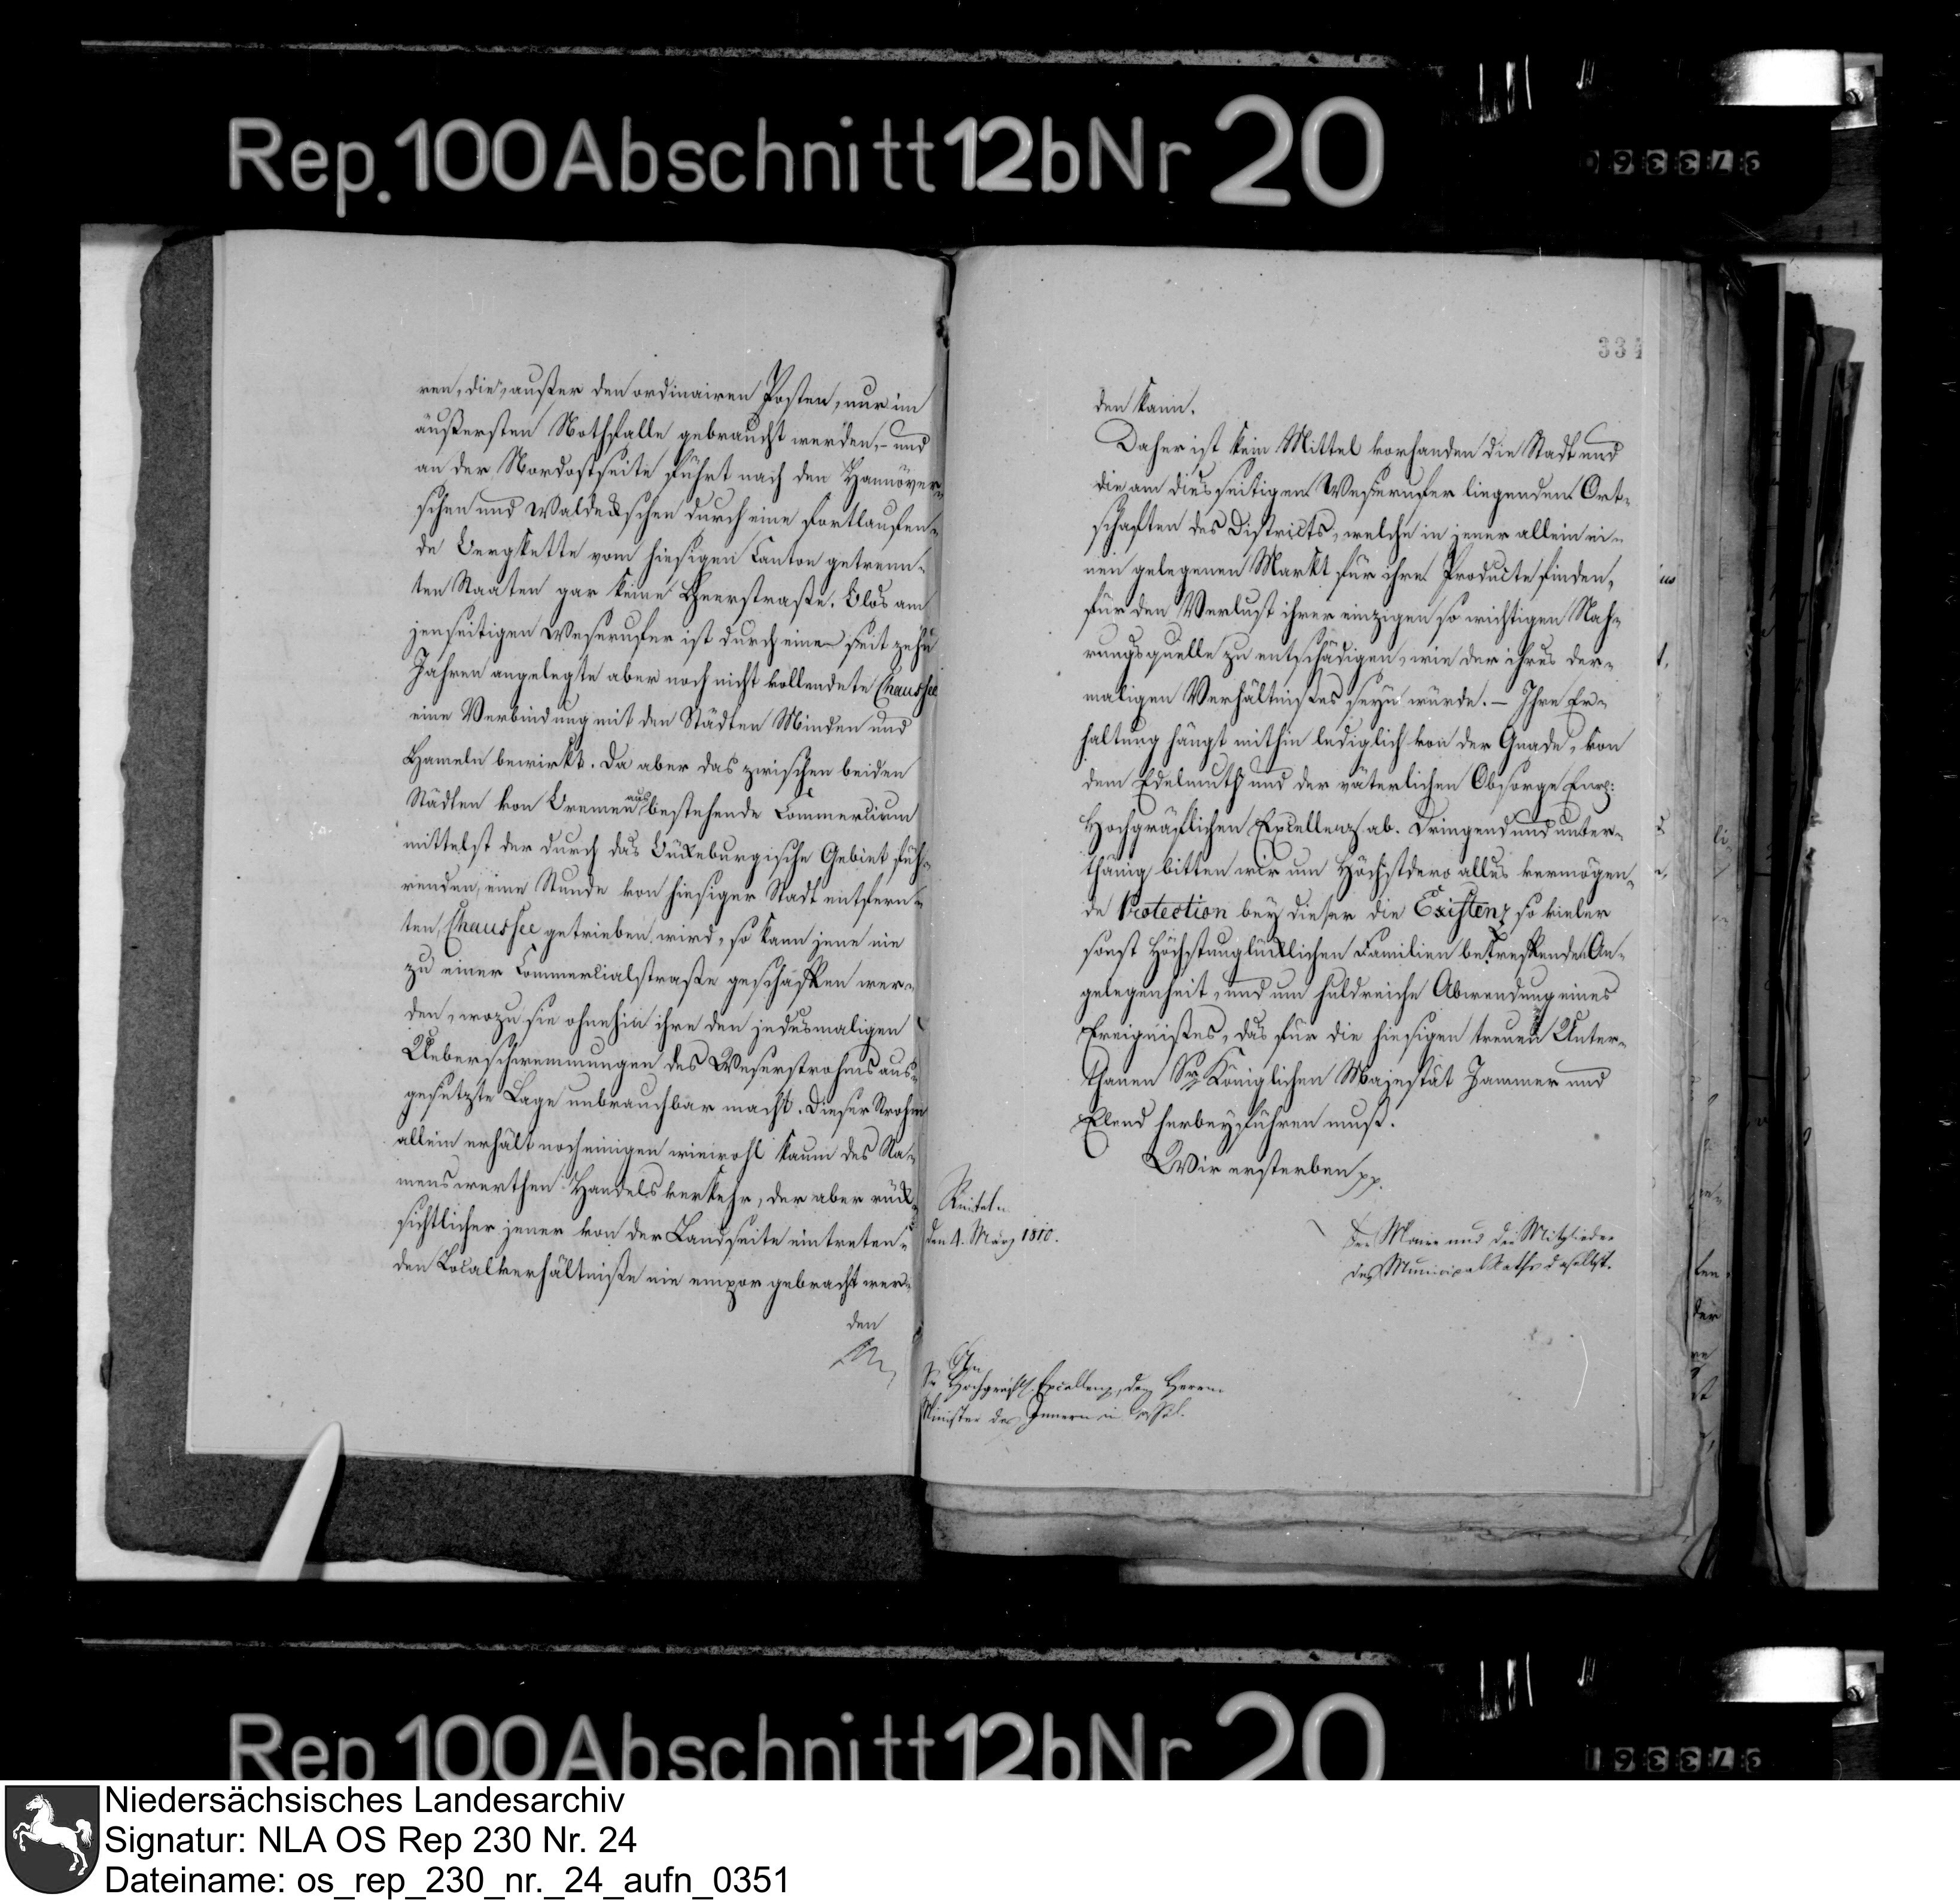 Rep. 100 Abschnitt 12b Nr 20
973360
ren, die, außer den ordinairen Posten, nur im
äußersten Nothfalle gebraucht werden, – und
an der Nordostseite führt nach den Hannöver-
schen und Waldeckschen durch eine fortlaufen-
de Bergkette vom hiesigen Canton getrenn-
ten Staaten gar keine Heerstraße. Blos am
jenseitigen Weserufer ist durch eine seit zehn
Jahren angelegte aber noch nicht vollendete Chaussee
eine Verbindung mit den Städten Minden und
Hameln bewirkt. Da aber das zwischen beiden
Städten von Bremen aus bestehende Commercium
mittelst der durch das Bückeburgische Gebiet füh-
renden, eine Stunde von hiesiger Stadt entfern-
ten, Chaussee getrieben wird, so kann jene nie
zu einer Commercialstraße geschaffen wer-
den, wozu sie ohnehin ihre den jedesmaligen
Ueberschwemmungen des Weserstrohms aus-
gesetzte Lage unbrauchbar macht. Dieser Strohm
allein erhält noch einigen wiewohl kaum des Na-
mens werthen Handelsverkehr, der aber rück-
sichtlicher jener von der Landseite eintreten-
den Localverhältniße nie empor gebracht wer-
den
334
den kann.
Daher ist kein Mittel vorhanden die Stadt und
die am diesseitigen Weserufer liegenden Ort-
schaften des Districts, welche in jener allein ei-
nen gelegenen Markt für ihre Producte finden,
für den Verlust ihrer einzigen so wichtigen Nah-
rungsquelle zu entschädigen, wie der ihres der-
maligen Verhältnißes seyn würde. – Ihre Er-
haltung hängt mithin lediglich von der Gnade, von
dem Edelmuth und der väterlichen Obsorge Ewr:
Hochgräflichen Excellenz ab. Dringend und unter-
thänig bitten wir um Höchstdero alles vermögen-
de Protection bey dieser die Existenz so vieler
sonst höchstunglücklichen Familien betreffenden An-
gelegenheit, und um huldreiche Abwendung eines
Ereignißes, das für die hiesigen treuen Unter-
thanen Sr. Königlichen Majestät Jammer und
Elend herbeyführen muß.
Wir ersterben pp.
Rinteln
den 4. März 1810.
Der Maire und die Mitglieder
des Municipal Raths daselbst.
An
Sr. Hochgräfl. Excellenz, den Herrn
Minister des Innern in Cassel.
Rep 100 Abschnitt 12b Nr 20
973361
Niedersächsisches Landesarchiv
Signatur: NLA OS Rep 230 Nr. 24
Dateiname: os_rep_230_nr._24_aufn_0351